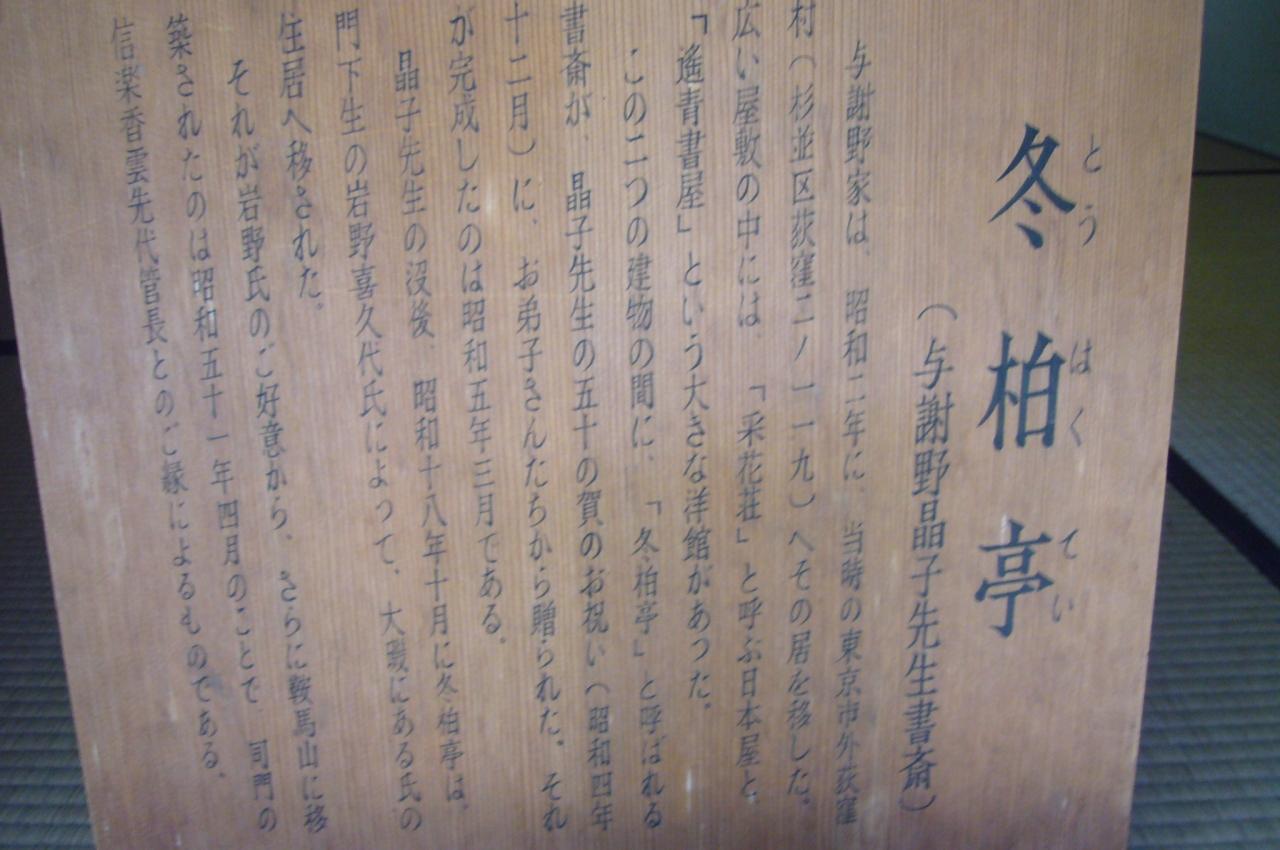 冬柏亭
とう はく てい
(与謝野晶子先生書斎)
与謝野家は、昭和二年に、当時の東京市外荻窪
村(杉並区荻窪二ノ一一九)へその居を移した。
広い屋敷の中には、「采花荘」と呼ぶ日本屋と、
「遙青書屋」という大きな洋館があった。
この二つの建物の間に、「冬柏亭」と呼ばれる
書斎が、晶子先生の五十の賀のお祝い(昭和四年
十二月)に、お弟子さんたちから贈られた。それ
が完成したのは昭和五年三月である。
晶子先生の没後、昭和十八年十月に冬柏亭は、
門下生の岩野喜久代氏によって、大磯にある氏の
住居へ移された。
それが岩野氏のご好意から、さらに鞍馬山に移
築されたのは昭和五十一年四月のことで 同門の
信楽香雲先代管長とのご縁によるものである。